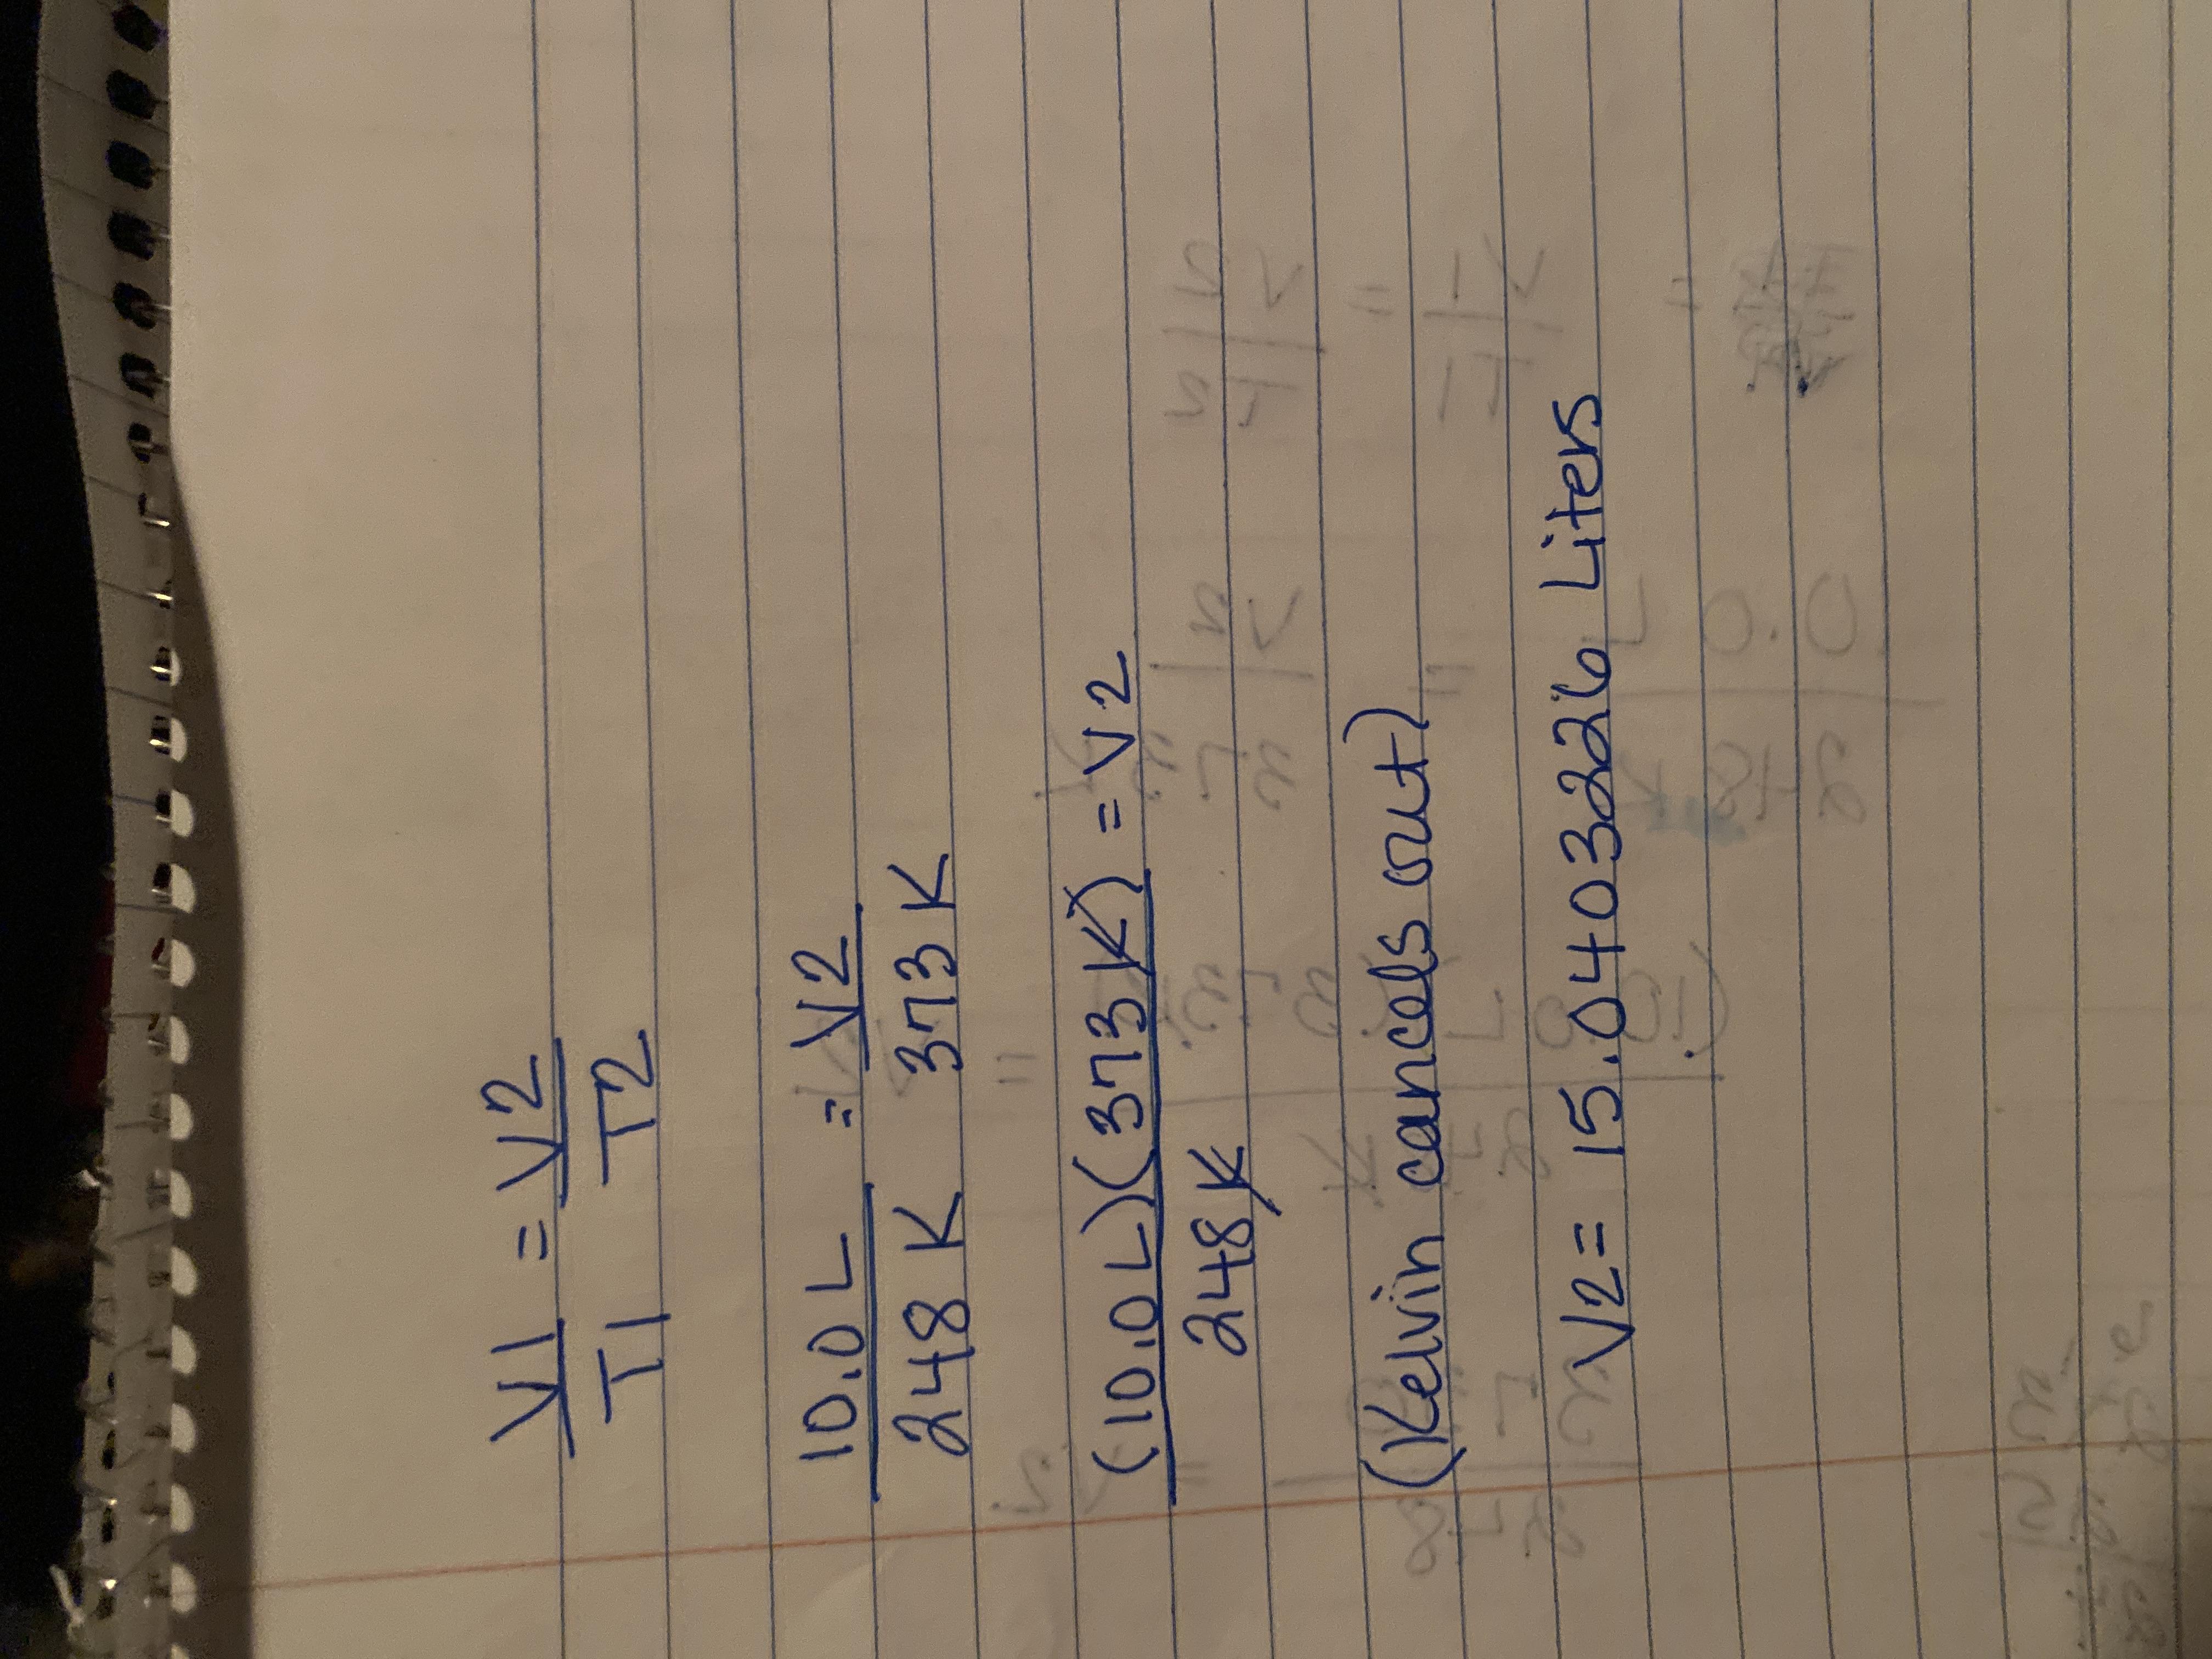 V1 = V2
T1 T2
10.0 L = V2
248 K 373 K
(10.0 L)(373 K) = V2
248 K
(Kelvin cancels out)
V2 = 15.0403226 Liters